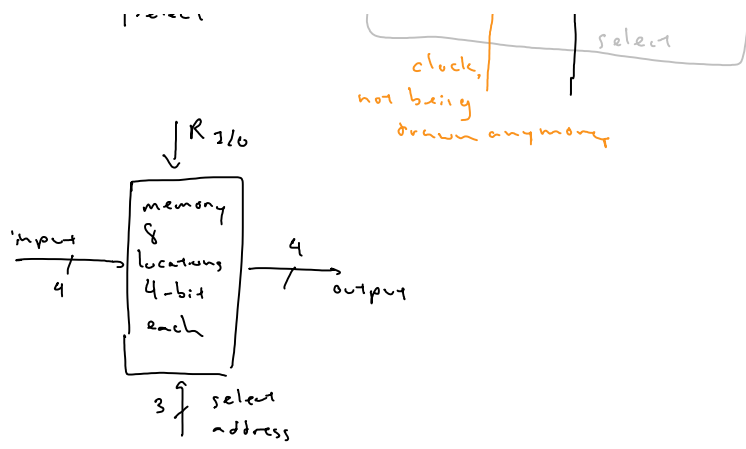 select
select
clock,
not being
drawn anymore,
R 1/0
memory
8
locations
4-bit
each
input
4
4
output
3
select
address